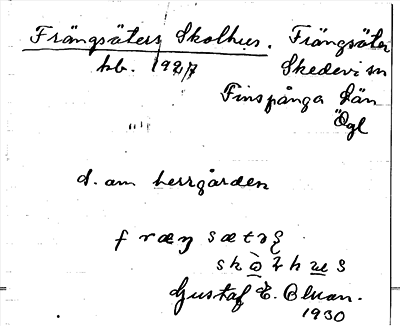 Frängsäters Skolhus. Frängsäter
hb. 1927 Skedevi sn
Finspånga län
Ögl
d. om herrgården
fræŋ sætəʂ
skɷ̀ɫhʉs
Gustaf E.
1930